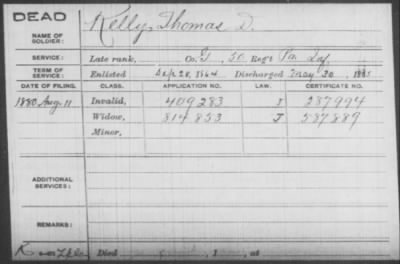 DEAD
NAME OF SOLDIER: Kelly, Thomas D.
SERVICE: Late rank, Co. G, 50 Reg't Pa Inf.
TERM OF SERVICE: Enlisted Sept 28, 1864 Discharged May 30, 1865
DATE OF FILING. CLASS. APPLICATION NO. LAW. CERTIFICATE NO.
1880 Aug. 11 Invalid, 409283 287994
Widow, 814853 J 587889
Minor,
ADDITIONAL SERVICES:
REMARKS:
Died at